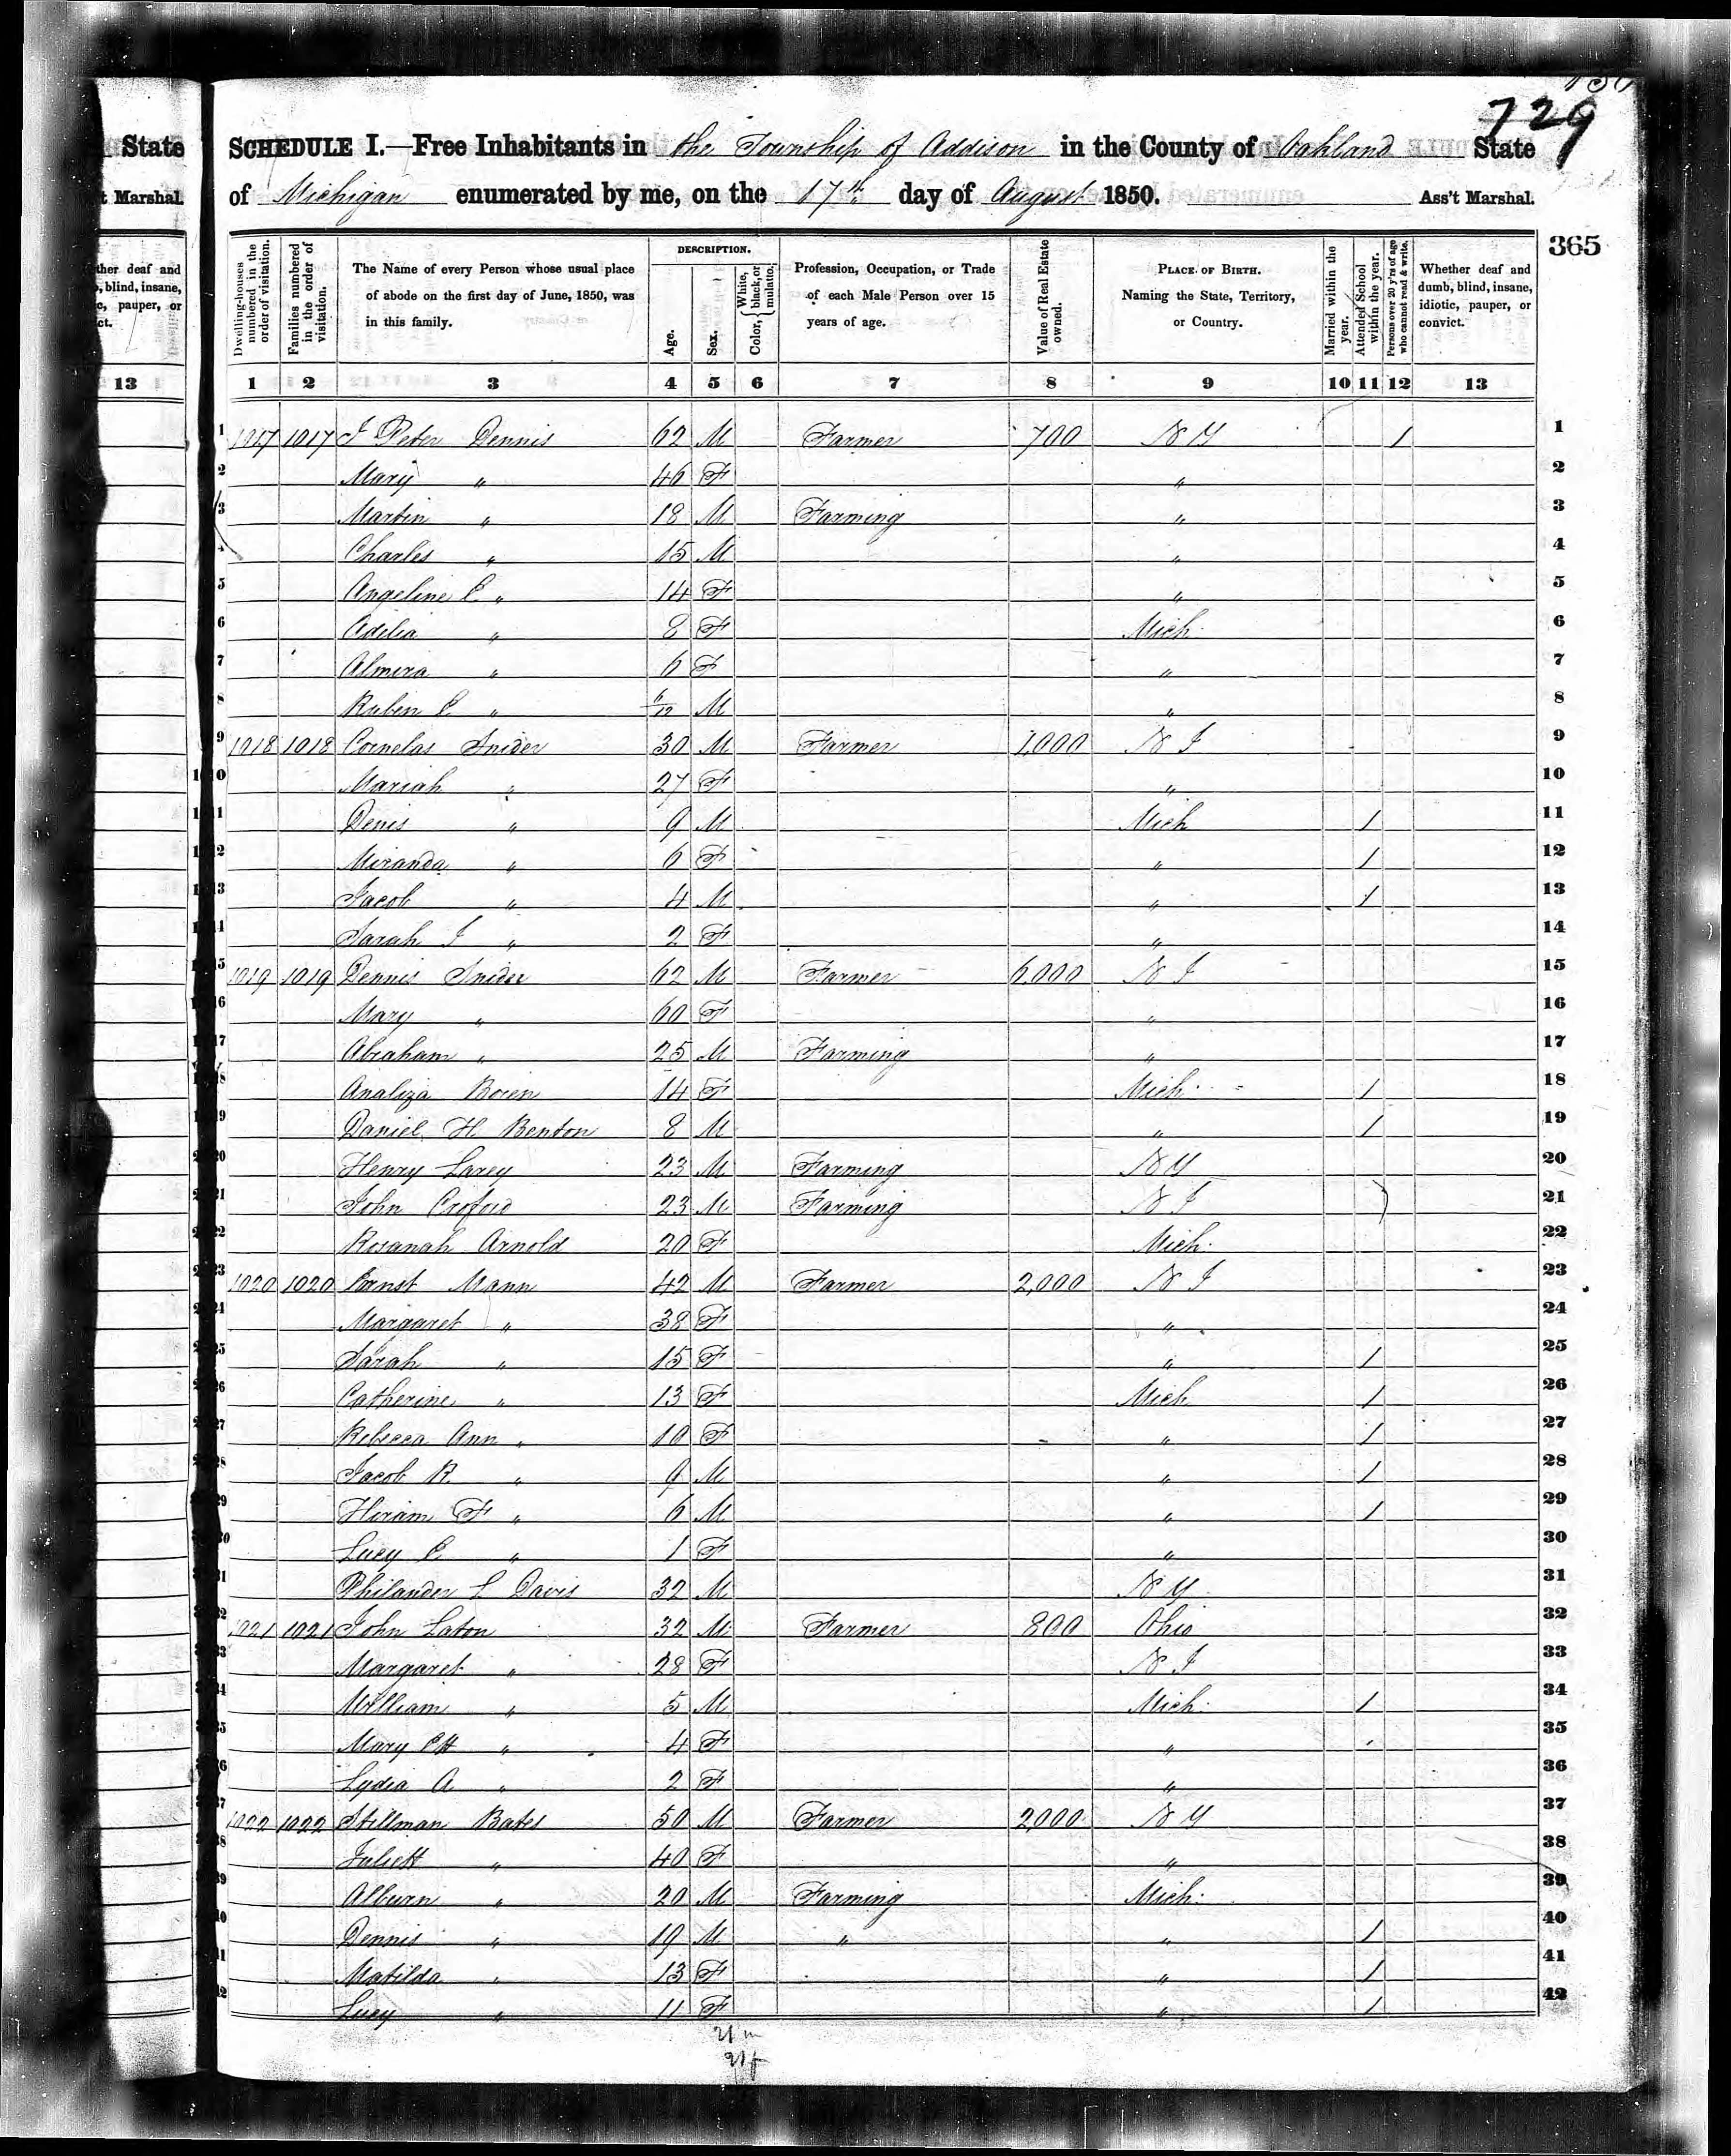 729
State
SCHEDULE I.—Free Inhabitants in the Township of Addison in the County of Oakland State
t Marshal.
of Michigan enumerated by me, on the 17th day of August 1850. Ass't Marshal.
365
ther deaf and
, blind, insane,
c, pauper, or
ct.
13
Dwelling-houses numbered in the order of visitation.
Families numbered in the order of visitation.
The Name of every Person whose usual place of abode on the first day of June, 1850, was in this family.
DESCRIPTION.
Age.
Sex.
Color, { White, black, or mulatto.
Profession, Occupation, or Trade of each Male Person over 15 years of age.
Value of Real Estate owned.
PLACE OF BIRTH. Naming the State, Territory, or Country.
Married within the year.
Attended School within the year.
Persons over 20 y'rs of age who cannot read & write.
Whether deaf and dumb, blind, insane, idiotic, pauper, or convict.
1 2 3 4 5 6 7 8 9 10 11 12 13
1 1017 1017 J Peter Dennis 62 M Farmer 700 N Y 1 1
2 Mary " 46 F " 2
3 Martin " 18 M Farming " 3
4 Charles " 15 M " 4
5 Angeline C " 14 F " 5
6 Adelia " 8 F Mich. 6
7 Almira " 6 F " 7
8 Ruben C " 6/12 M " 8
9 1018 1018 Cornelas Snider 30 M Farmer 1,000 N J 9
10 Mariah " 27 F " 10
11 Denis " 9 M Mich 1 11
12 Miranda " 6 F " 1 12
13 Jacob " 4 M " 1 13
14 Sarah J " 2 F " 14
15 1019 1019 Dennis Snider 62 M Farmer 6,000 N J 15
16 Mary " 60 F " 16
17 Abraham " 25 M Farming " 17
18 Analiza Boren 14 F Mich. 1 18
19 Daniel H. Benton 8 M " 1 19
20 Henry Larey 23 M Farming N Y 20
21 John Croford 23 M Farming N J 21
22 Rosanah Arnold 20 F Mich. 22
23 1020 1020 Earnst Mann 42 M Farmer 2,000 N J 23
24 Margaret " 38 F " 24
25 Sarah " 15 F " 1 25
26 Catherine " 13 F Mich 1 26
27 Rebecca Ann " 10 F " 1 27
28 Jacob R. " 9 M " 1 28
29 Hiram F " 6 M " 1 29
30 Lucy C. " 1 F " 30
31 Philander L Davis 32 M N Y 31
32 1021 1021 John Laton 32 M Farmer 800 Ohio 32
33 Margaret " 28 F N J 33
34 William " 5 M Mich. 1 34
35 Mary " 4 F " 35
36 Lydia A " 2 F " 36
37 1022 1022 Stillman Bates 50 M Farmer 2,000 N Y 37
38 Juliett " 40 F " 38
39 Alburn " 20 M Farming Mich. 39
40 Dennis " 19 M " " 1 40
41 Matilda " 13 F " 1 41
42 Lucy " 11 F " 1 42
21 m
21 f